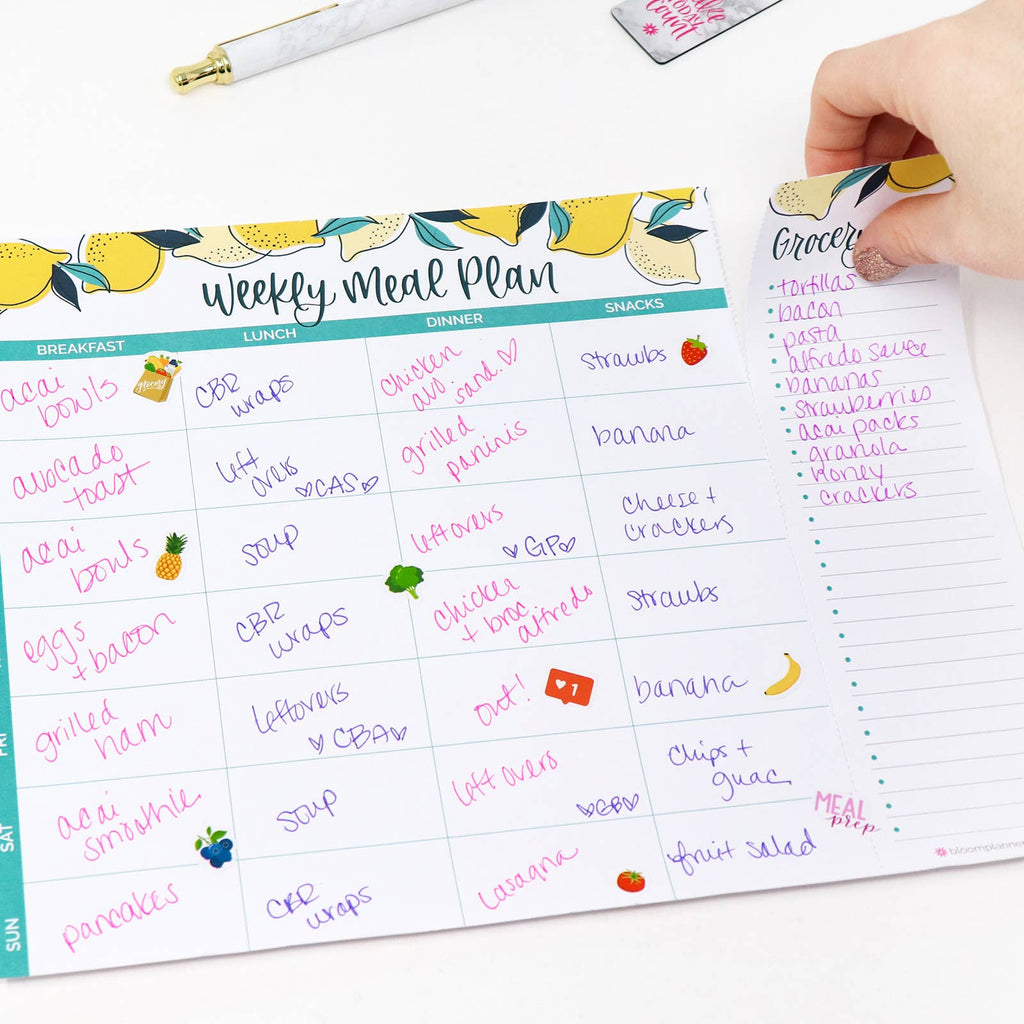 TODAY
Count
Weekly Meal Plan
BREAKFAST LUNCH DINNER SNACKS
acai
bowls
Grocery
CBR
wraps
chicken
avo sand.
strawbs
avocado
toast
left
overs
CAS
grilled
paninis
banana
acai
bowls
soup
leftovers
GP
cheese +
crackers
eggs
+ bacon
CBR
wraps
chicken
+ broc
alfredo
strawbs
FRI
grilled
ham
leftovers
CBA
out!
1
banana
SAT
acai
smoothie
soup
leftovers
GB
chips +
guac
SUN
pancakes
CBR
wraps
lasagna
fruit salad
MEAL
prep
Grocery
tortillas
bacon
pasta
alfredo sauce
bananas
strawberries
acai packs
granola
honey
crackers
bloomplanner